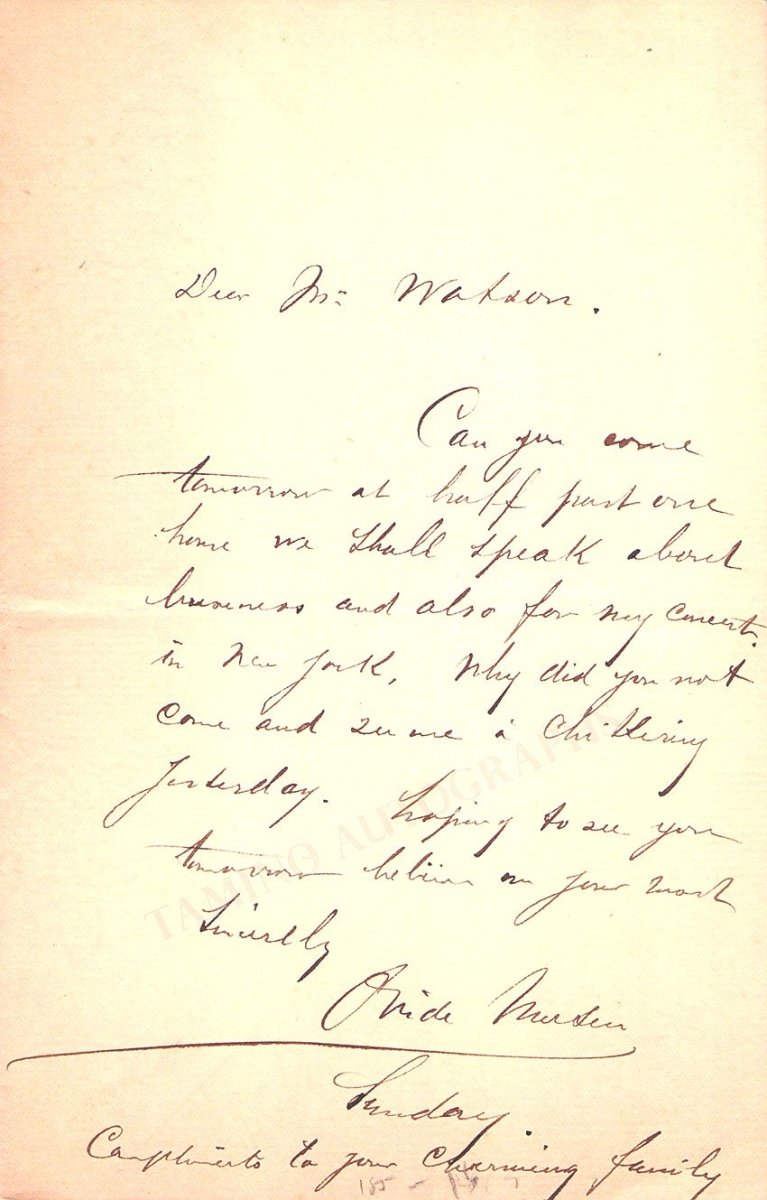 Dear Mr Watson.
Can you come
tomorrow at half past one
home we shall speak about
business and also for my concert.
in New York. Why did you not
come and see me à Chikering
yesterday. hoping to see you
tomorrow believe me your most
Sincerely
Ovide Musin
Sunday
Compliments to your charming family
TAMINO AUTOGRAPHS